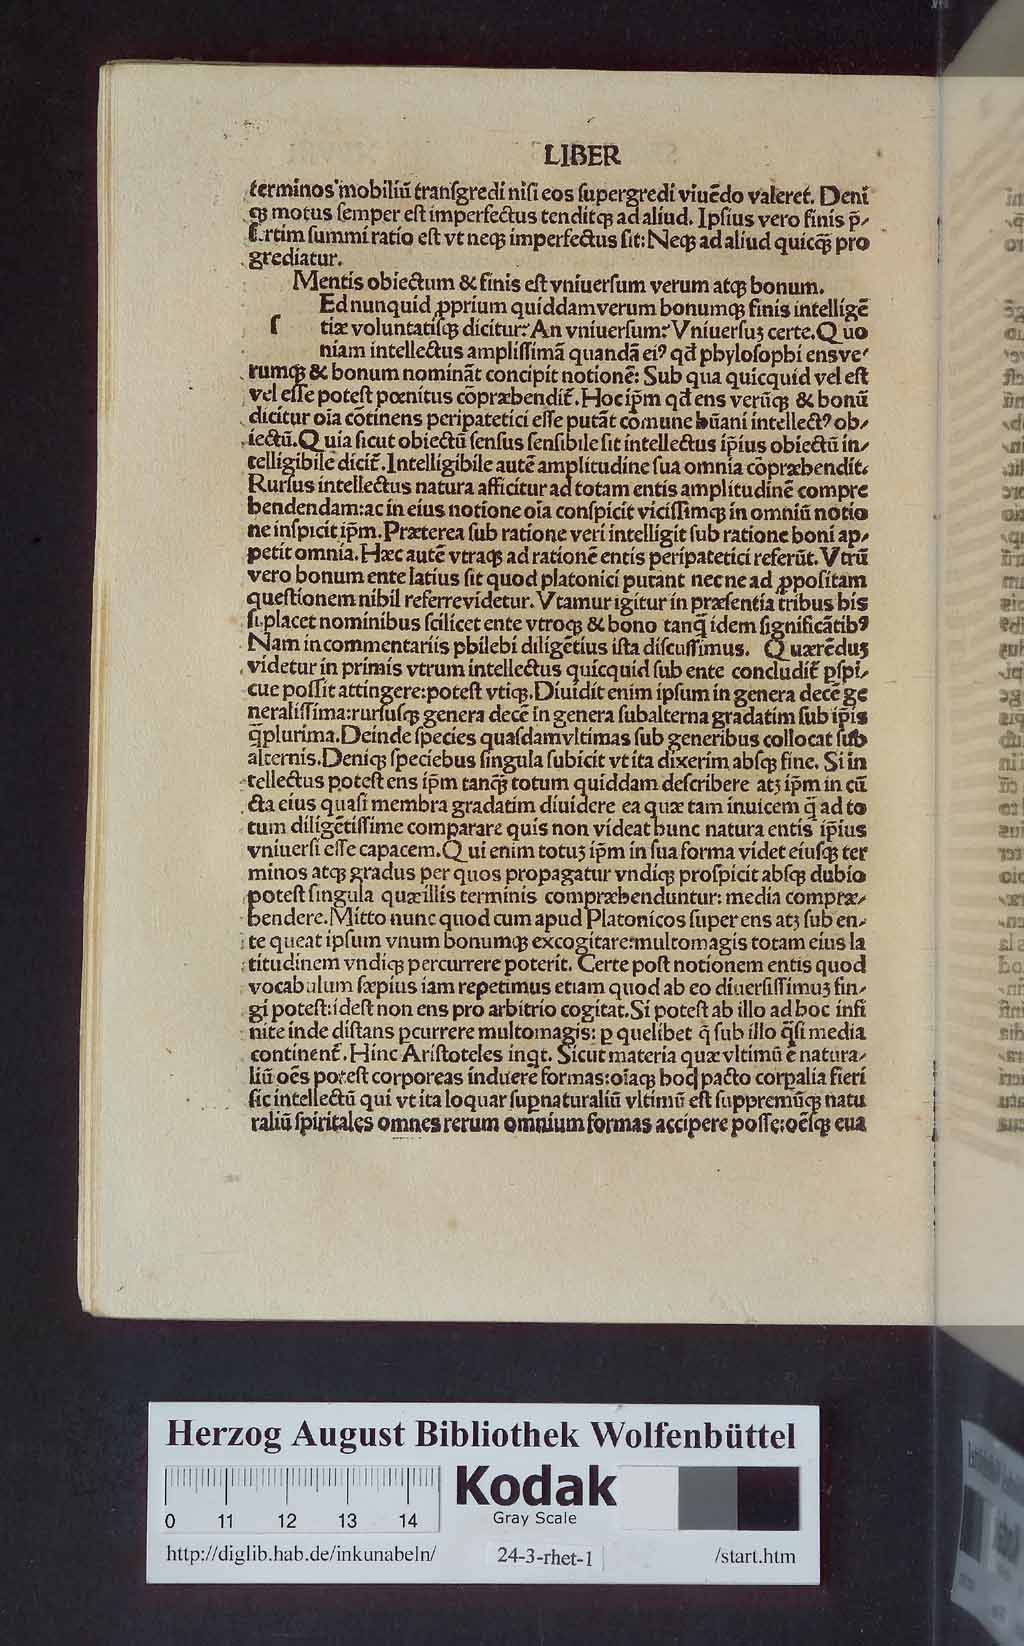 LIBER
terminos mobiliū tranſgredi niſi eos ſupergredi viuēdo valeret. Deni
qꝫ motus ſemper eſt imperfectus tenditqꝫ ad aliud. Ipſius vero finis p̄⸗
ſertim ſummi ratio eſt vt neqꝫ imperfectus ſit: Neqꝫ ad aliud quicq̄ꝫ pro
grediatur.
Mentis obiectum & finis eſt vniuerſum verum atqꝫ bonum.
Ed nunquid ꝓprium quiddam verum bonumqꝫ finis intelligē
ſ tiæ voluntatiſqꝫ dicitur? An vniuerſum? Vniuerſuꝫ certe. Quo
niam intellectus ampliſſimā quandā eiꝰ qd̄ phyloſophi ens ve⸗
rumqꝫ & bonum nomināt concipit notionē: Sub qua quicquid vel eſt
vel eſſe poteſt pœnitus cōpræhendit̄. Hoc ip̄m qd̄ ens verūqꝫ & bonū
dicitur oīa cōtinens peripatetici eſſe putāt cōmune hūani intellectꝰ ob⸗
iectū. Quia ſicut obiectū ſenſus ſenſibile ſit intellectus ip̄ius obiectū in⸗
telligibile dicit̄. Intelligibile autē amplitudine ſua omnia cōpræhendit.
Rurſus intellectus natura afficitur ad totam entis amplitudinē compre
hendendam: ac in eius notione oīa conſpicit viciſſimqꝫ in omniū notio
ne inſpicit ip̄m. Præterea ſub ratione veri intelligit ſub ratione boni ap⸗
petit omnia. Hæc autē vtraqꝫ ad rationē entis peripatetici referūt. Vtrū
vero bonum ente latius ſit quod platonici putant necne ad ꝓpoſitam
queſtionem nihil referre videtur. Vtamur igitur in præſentia tribus his
ſi placet nominibus ſcilicet ente vtroqꝫ & bono tanq̄ idem ſignificātibꝰ
Nam in commentariis philebi diligētius iſta diſcuſſimus. Quærēduꝫ
videtur in primis vtrum intellectus quicquid ſub ente concludit̄ ꝑſpi⸗
cue poſſit attingere: poteſt vtiqꝫ. Diuidit enim ipſum in genera decē ge
neraliſſima: rurſuſqꝫ genera decē in genera ſubalterna gradatim ſub ip̄is
q̄plurima. Deinde ſpecies quaſdam vltimas ſub generibus collocat ſub
alternis. Deniqꝫ ſpeciebus ſingula ſubicit vt ita dixerim abſqꝫ fine. Si in
tellectus poteſt ens ip̄m tanq̄ꝫ totum quiddam deſcribere atꝫ ip̄m in cū
cta eius quaſi membra gradatim diuidere ea quæ tam inuicem q̄ ad to
tum diligētiſſime comparare quis non videat hunc natura entis ip̄ius
vniuerſi eſſe capacem. Qui enim totuꝫ ip̄m in ſua forma videt eiuſqꝫ ter
minos atqꝫ gradus per quos propagatur vndiqꝫ proſpicit abſqꝫ dubio
poteſt ſingula quæ illis terminis compræhenduntur: media compræ⸗
hendere. Mitto nunc quod cum apud Platonicos ſuper ens atꝫ ſub en⸗
te queat ipſum vnum bonumqꝫ excogitare: multomagis totam eius la
titudinem vndiqꝫ percurrere poterit. Certe poſt notionem entis quod
vocabulum ſæpius iam repetimus etiam quod ab eo diuerſiſſimuꝫ fin⸗
gi poteſt: ideſt non ens pro arbitrio cogitat. Si poteſt ab illo ad hoc infi
nite inde diſtans ꝑcurrere multomagis: ꝑ quelibet q̄ ſub illo q̄ſi media
continent̄. Hinc Ariſtoteles inqt. Sicut materia quæ vltimū ē natura⸗
liū oēs poteſt corporeas induere formas: oīaqꝫ hoc pacto corꝑalia fieri
ſic intellectū qui vt ita loquar ſuꝑnaturaliū vltimū eſt ſuppremūqꝫ natu
raliū ſpiritales omnes rerum omnium formas accipere poſſe: oēſqꝫ eua
Herzog August Bibliothek Wolfenbüttel
Kodak
Gray Scale
0 11 12 13 14
http://diglib.hab.de/inkunabeln/ 24-3-rhet-1 /start.htm